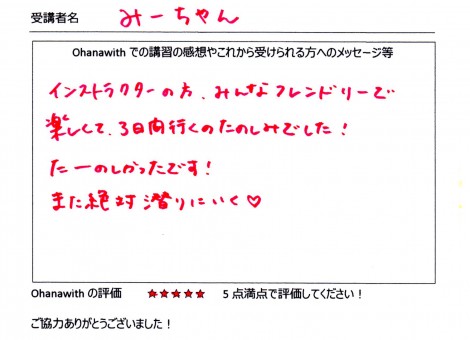 受講者名 みーちゃん
Ohanawith での講習の感想やこれから受けられる方へのメッセージ等
インストラクターの方、みんなフレンドリーで
楽しくて、3日間行くのたのしみでした！
たーのしかったです！
また絶対潜りにいく♡
Ohanawith の評価 ★★★★★ 5 点満点で評価してください！
ご協力ありがとうございました！